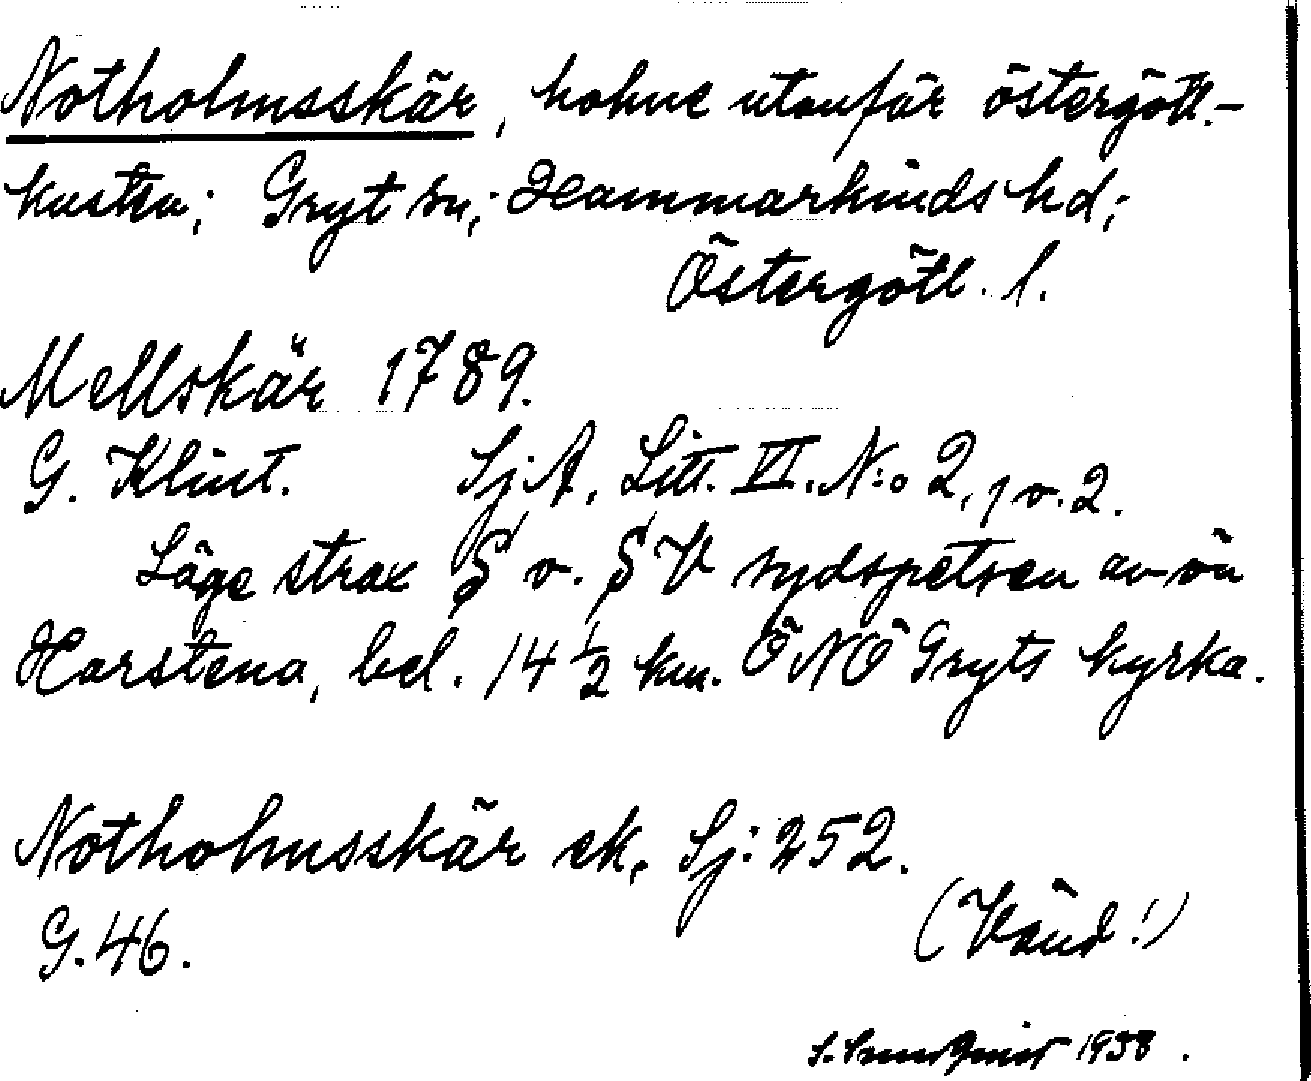 Notholmsskär, holme utanför östergötl.-
kusten; Gryt sn; Hammarkinds hd;
Östergötl. l.
Mellskär 1789.
G. Klint. Sj.A, Litt. VI. N:o 2, 1 o. 2.
Läge strax S o. SV sydspetsen av ön
Harstena, bel. 14 1/2 km. ÖNÖ Gryts kyrka.
Notholmsskär ek, Sj: 252.
G. 46.
(Vänd!)
1938.